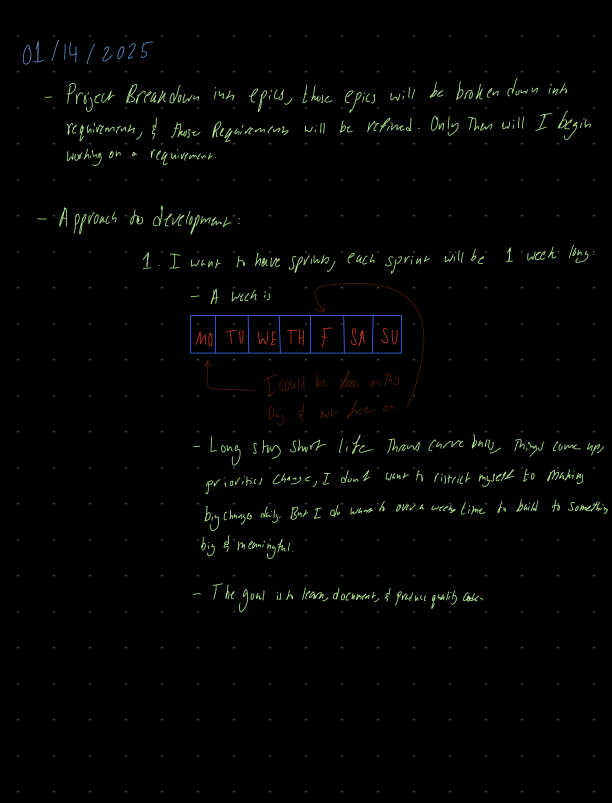 01/14/2025
- Project Breakdown into epics, those epics will be broken down into
requirements, & those Requirements will be refined. Only Then will I begin
working on a requirement.
- Approach to development:
1. I want to have sprints, each sprint will be 1 week long:
- A week is
MO TU WE TH F SA SU
I could be free on this
Day & not free on
- Long story short life throws curve balls, Things come up,
priorities change, I don't want to ristrict myself to making
big changes daily. But I do want to over a weeks time to build to something
big & meaningful.
- The goal is to learn, document, & produce quality code.